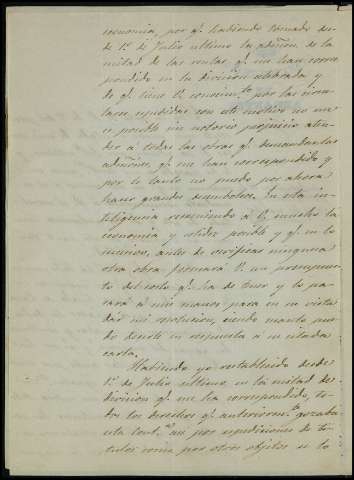 economia, por qe. habiendo tomado des-
de 1º. de Julio ultimo la admon. de la
mitad de las rentas qe. me han corres-
pondido en la division celebrada y
de qe. tiene V. conocimto. por las circu-
lares expedidas con este motivo no me
es posible sin notorio perjuicio aten-
der á todas las obras qe. demandan las
admones. qe. me han correspondido y
por lo tanto no puedo por ahora
hacer grandes desembolsos. En esta in-
teligencia recomiendo á V. mucho la
economia y solidez posible y qe. en lo
sucesivo, antes de verificar ninguna
otra obra formará V. un presupues-
to del costo qe. ha de tener y lo pa-
sará á mis manos para en su vista
dar mi resolucion, siendo cuanto pue-
do decirle en respuesta á su citada
carta.
Habiendo yo restablecido desde
1º. de Julio ultimo, en la mitad de
division qe. me ha correspondido, to-
dos los derechos qe. anteriormte. gozaba
esta Cont. en por expediciones de ti-
tulos como por otros objetos se lo